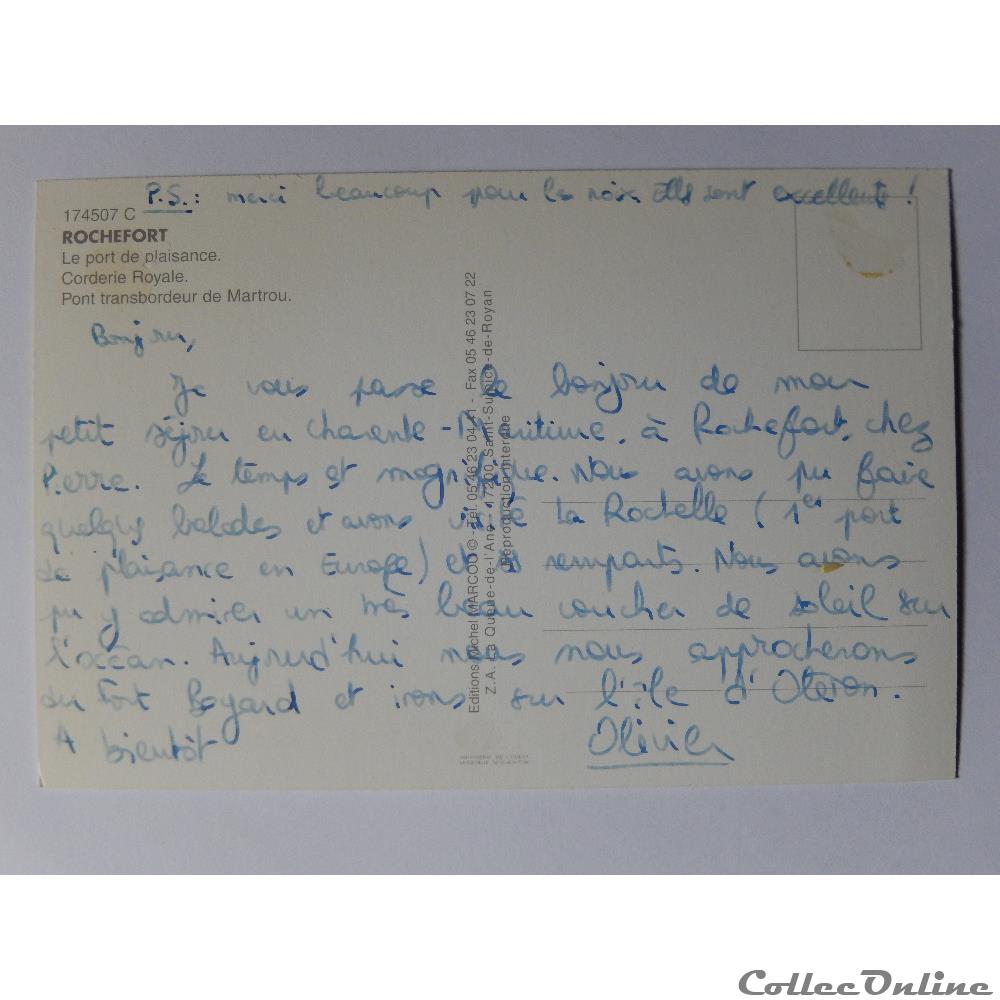 P.S. : merci beaucoup pour les noix. Elles sont excellentes !
174507 C
ROCHEFORT
Le port de plaisance.
Corderie Royale.
Pont transbordeur de Martrou.
Bonjour,
Je vous passe le bonjour de mon
petit séjour en Charente-Maritime, à Rochefort, chez
Pierre. Le temps est magnifique. Nous avons pu faire
quelques balades et avons visité La Rochelle (1er port
de plaisance en Europe) et ses remparts. Nous avons
pu y admirer un très beau coucher de soleil sur
l'océan. Aujourd'hui nous nous approcherons
du Fort Boyard et irons sur l'île d'Oléron.
A bientôt
Olivier
Editions Michel MARCOU © - Tél. 05 46 23 04 41 - Fax 05 46 23 07 22
Z.A. La Queue-de-l'Ane - 17200 Saint-Sulpice-de-Royan
Reproduction interdite
CollecOnline